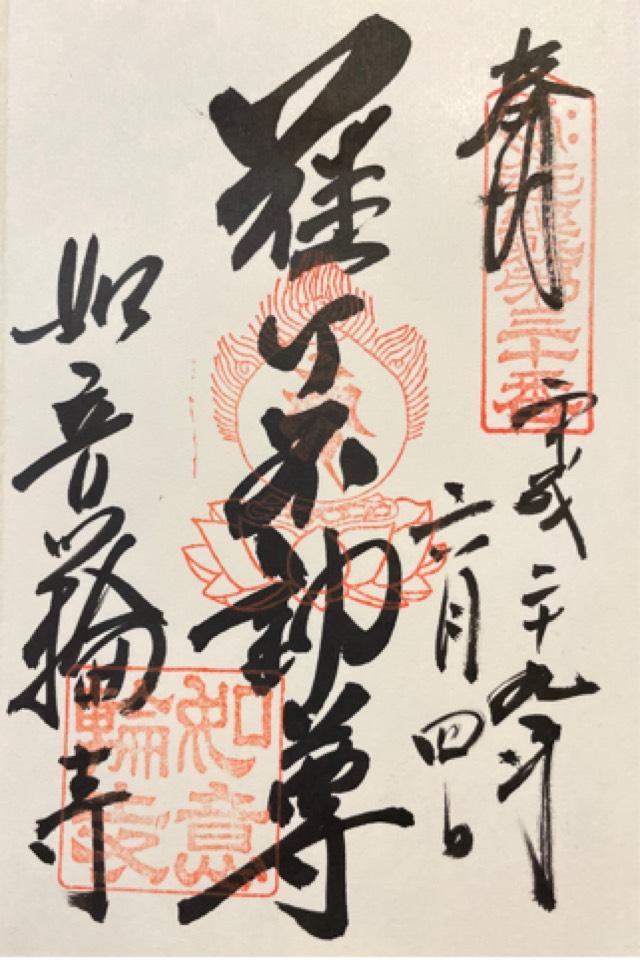 奉拝
第三十番
平成二十九年
六月四日
難切不動尊
如意輪寺
如意
輪寺